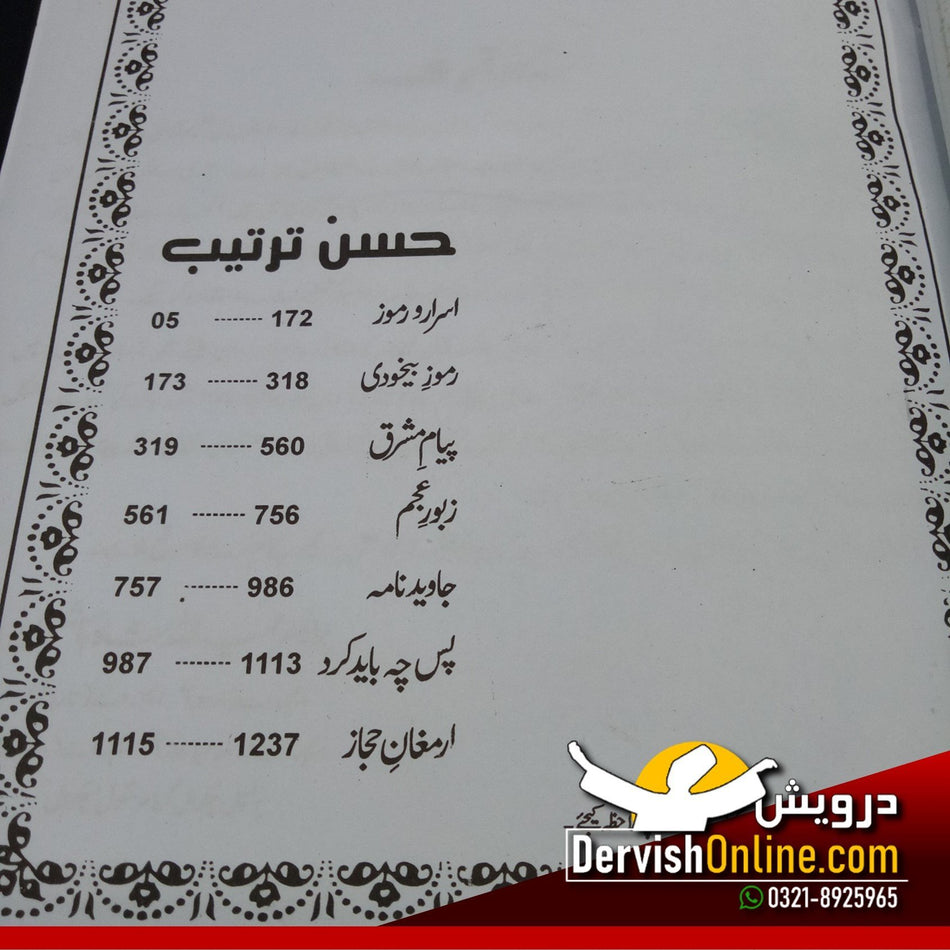 حسن ترتیب
اسرار و رموز 172 -------- 05
رموزِ بیخودی 318 -------- 173
پیامِ مشرق 560 -------- 319
زبورِ عجم 756 -------- 561
جاوید نامہ 986 -------- 757
پس چہ باید کرد 1113 -------- 987
ارمغانِ حجاز 1237 -------- 1115
کیجئے
درویش
DervishOnline.com
0321-8925965